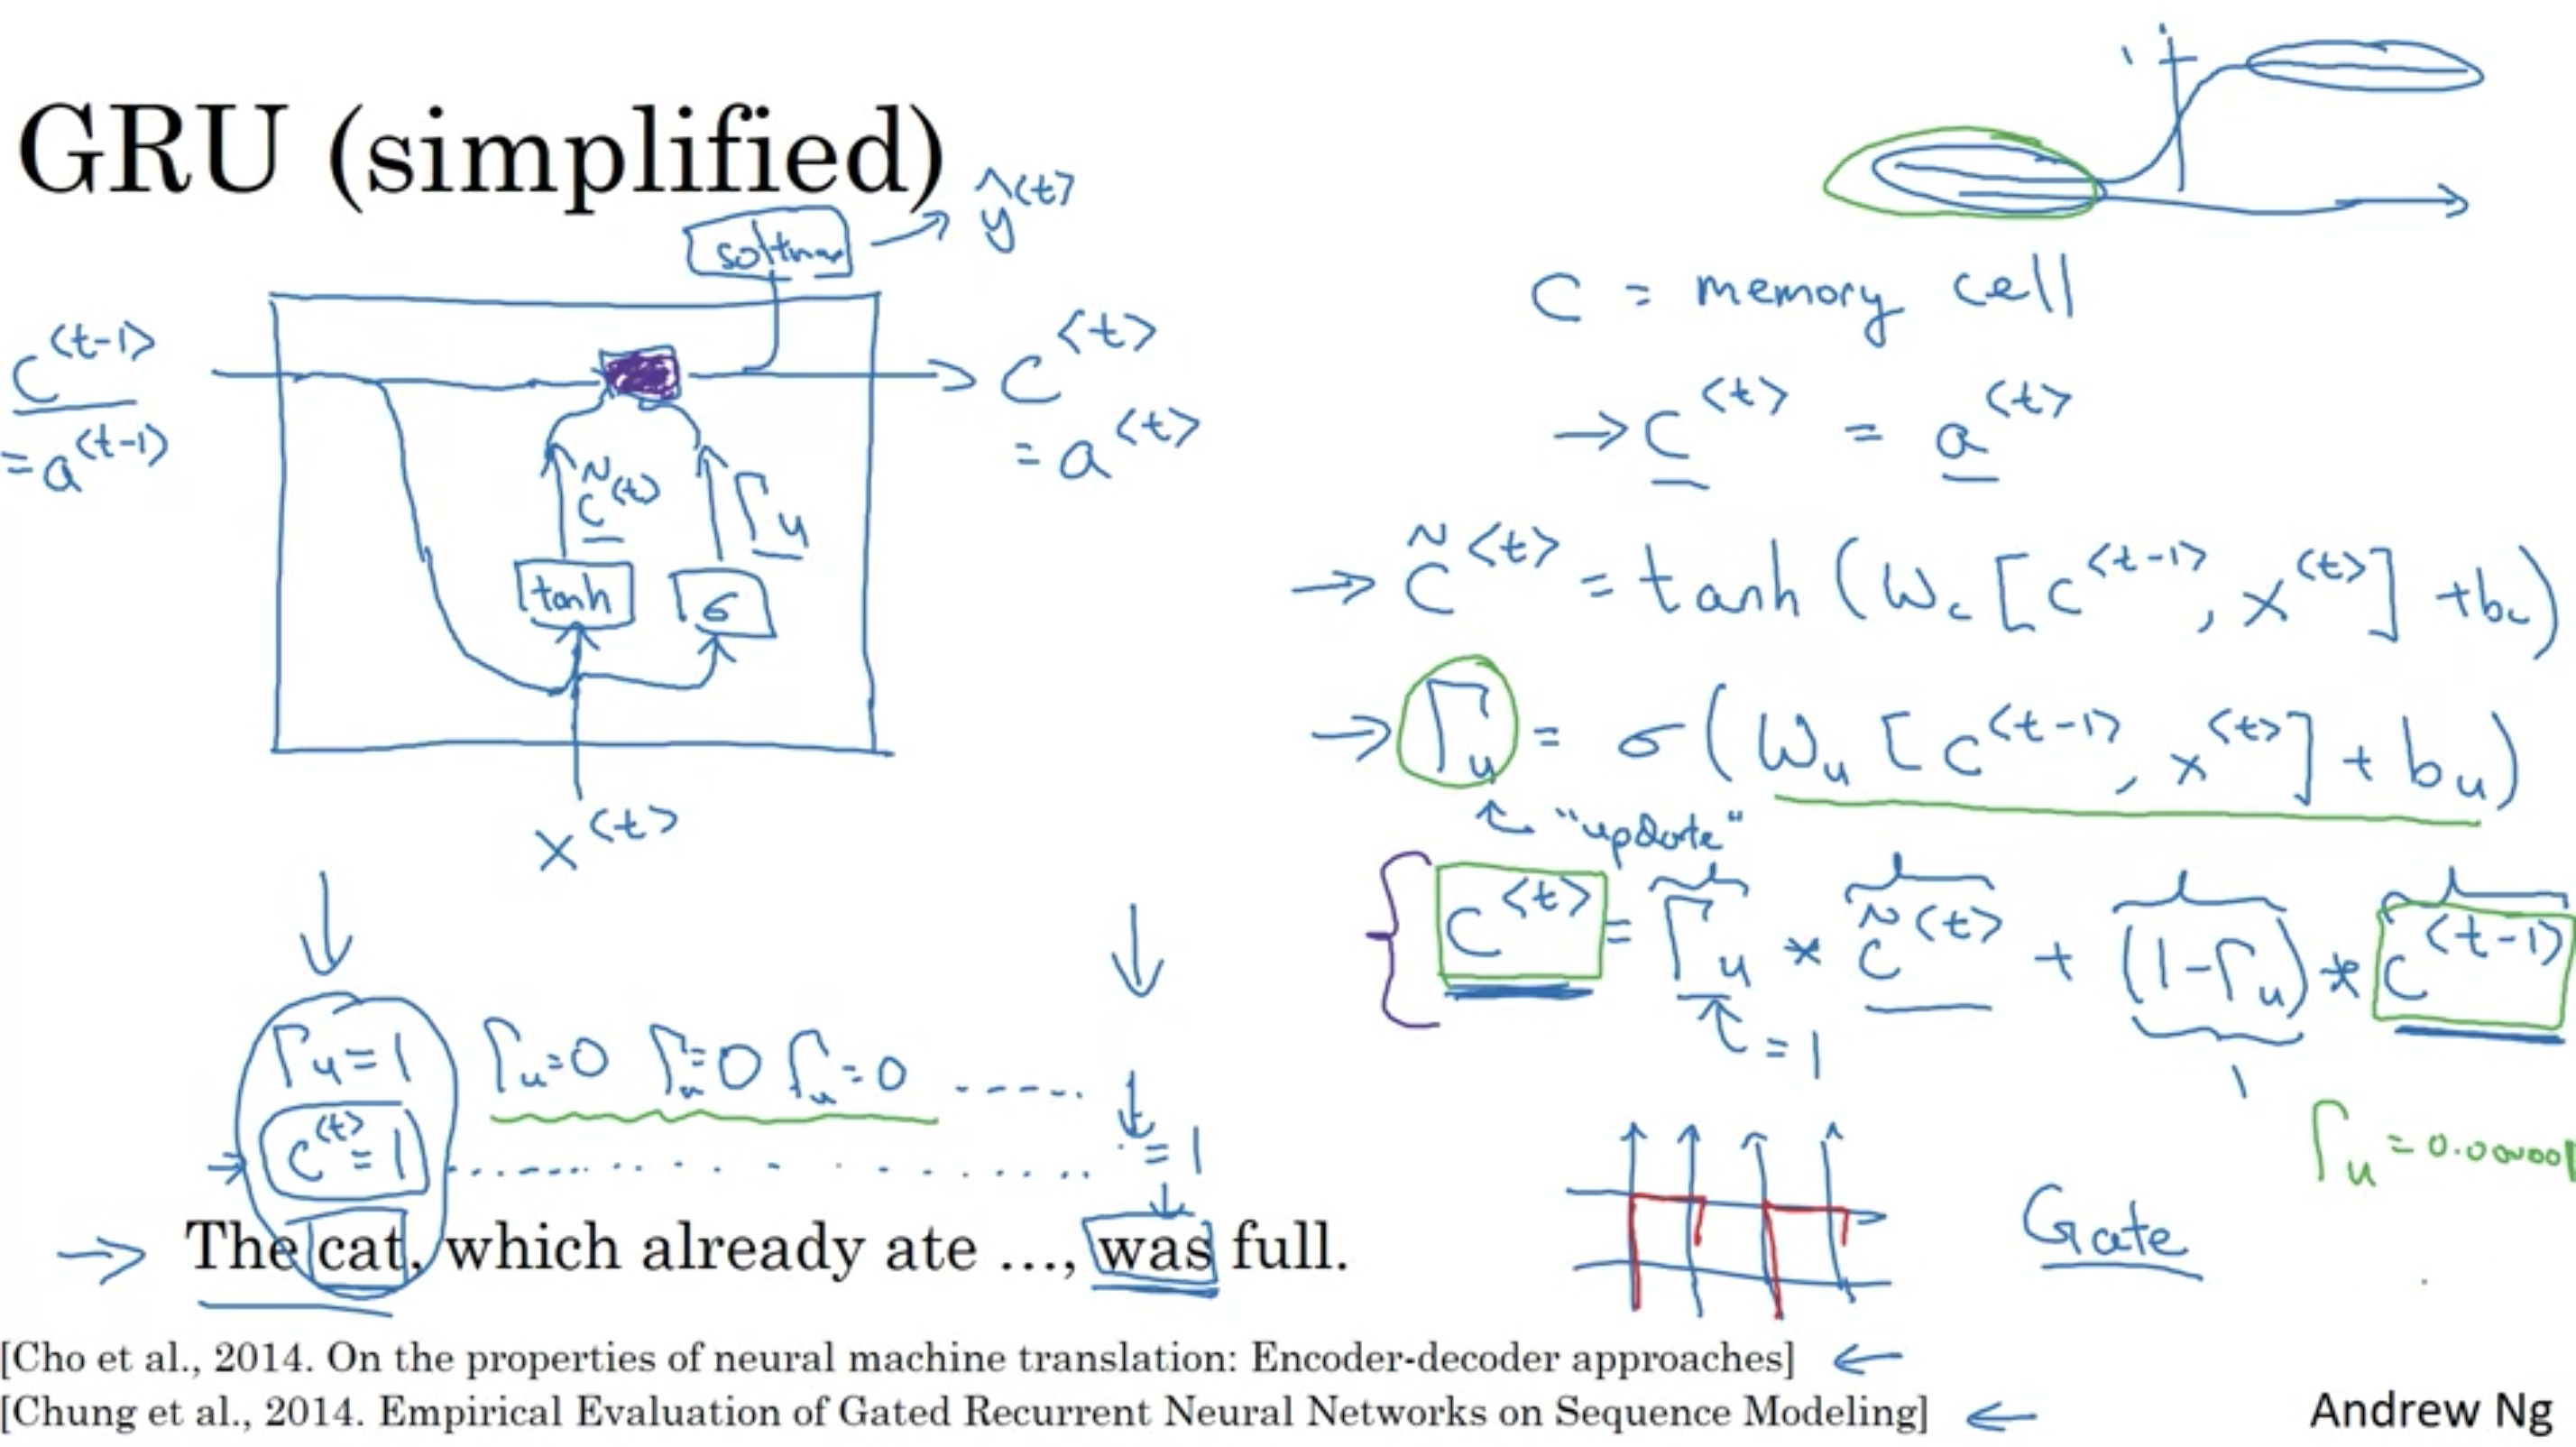 GRU (simplified)
softmax → ŷ<t>
c<t-1>
= a<t-1>
c<t>
= a<t>
c̃<t>
Γu
tanh
σ
x<t>
c = memory cell
→ c<t> = a<t>
→ c̃<t> = tanh(Wc[c<t-1>, x<t>] + bc)
→ Γu = σ(Wu[c<t-1>, x<t>] + bu)
"update"
c<t> = Γu * c̃<t> + (1-Γu) * c<t-1>
= 1
1
Γu = 0.000001
Gate
Γu=1 Γu=0 Γu=0 Γu=0 .....
c<t>=1 ..... = 1
→ The cat, which already ate ..., was full.
[Cho et al., 2014. On the properties of neural machine translation: Encoder-decoder approaches] ←
[Chung et al., 2014. Empirical Evaluation of Gated Recurrent Neural Networks on Sequence Modeling] ←
Andrew Ng